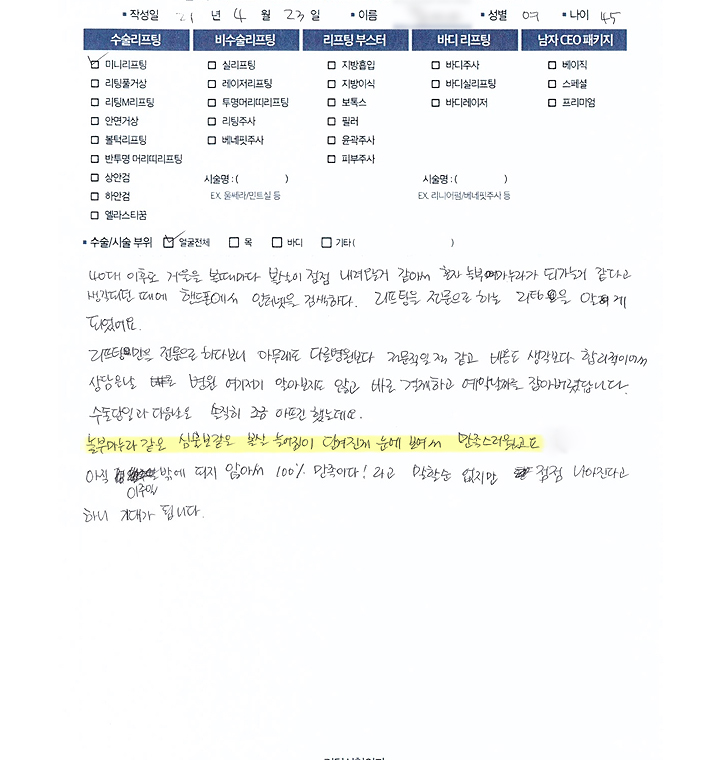 작성일 21 년 4 월 23 일 이름 성별 여 나이 45
수술리프팅 비수술리프팅 리프팅 부스터 바디 리프팅 남자 CEO 패키지
미니리프팅 실리프팅 지방흡입 바디주사 베이직
리팅풀거상 레이저리프팅 지방이식 바디실리프팅 스페셜
리팅M리프팅 투명머리띠리프팅 보톡스 바디레이저 프리미엄
안면거상 리팅주사 필러
볼턱리프팅 베네핏주사 윤곽주사
반투명 머리띠리프팅 피부주사
상안검 시술명 : ( ) 시술명 : ( )
하안검 EX. 울쎄라/민트실 등 EX. 리니어펌/베네핏주사 등
엘라스티꿈
수술/시술 부위 얼굴전체 목 바디 기타 ( )
40대 이후로 거울을 볼때마다 볼살이 점점 내려앉는거 같아서 혼자 놀부마누라가 되가는거 같다고
생각하던 때에 핸드폰에서 인터넷을 검색하다. 리프팅을 전문으로 하는 리팅을 알게
되었어요.
리프팅만을 전문으로 하다보니 아무래도 다른병원보다 전문적일것 같고 비용도 생각보다 합리적이여서
상담온날 병원 여기저기 알아보지도 않고 바로 결제하고 예약날짜를 잡아버렸답니다.
수술당일과 다음날은 솔직히 조금 아프긴 했는데요.
놀부마누라 같은 심술보같은 볼살 늘어짐이 당겨진게 눈에 보여서 만족스러웠고요
아직 이주일 밖에 되지 않아서 100% 만족이다! 라고 말할순 없지만 점점 나아진다고
하니 기대가 됩니다.